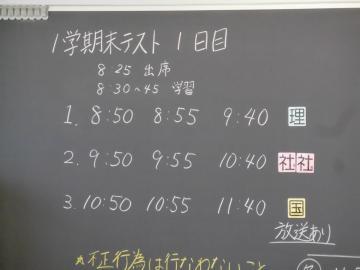 1学期末テスト 1日目
8 25 出席
8:30~45 学習
1. 8:50 8:55 9:40 理
2. 9:50 9:55 10:40 社社
3. 10:50 10:55 11:40 国
放送あり
*不正行為は行なわないこと